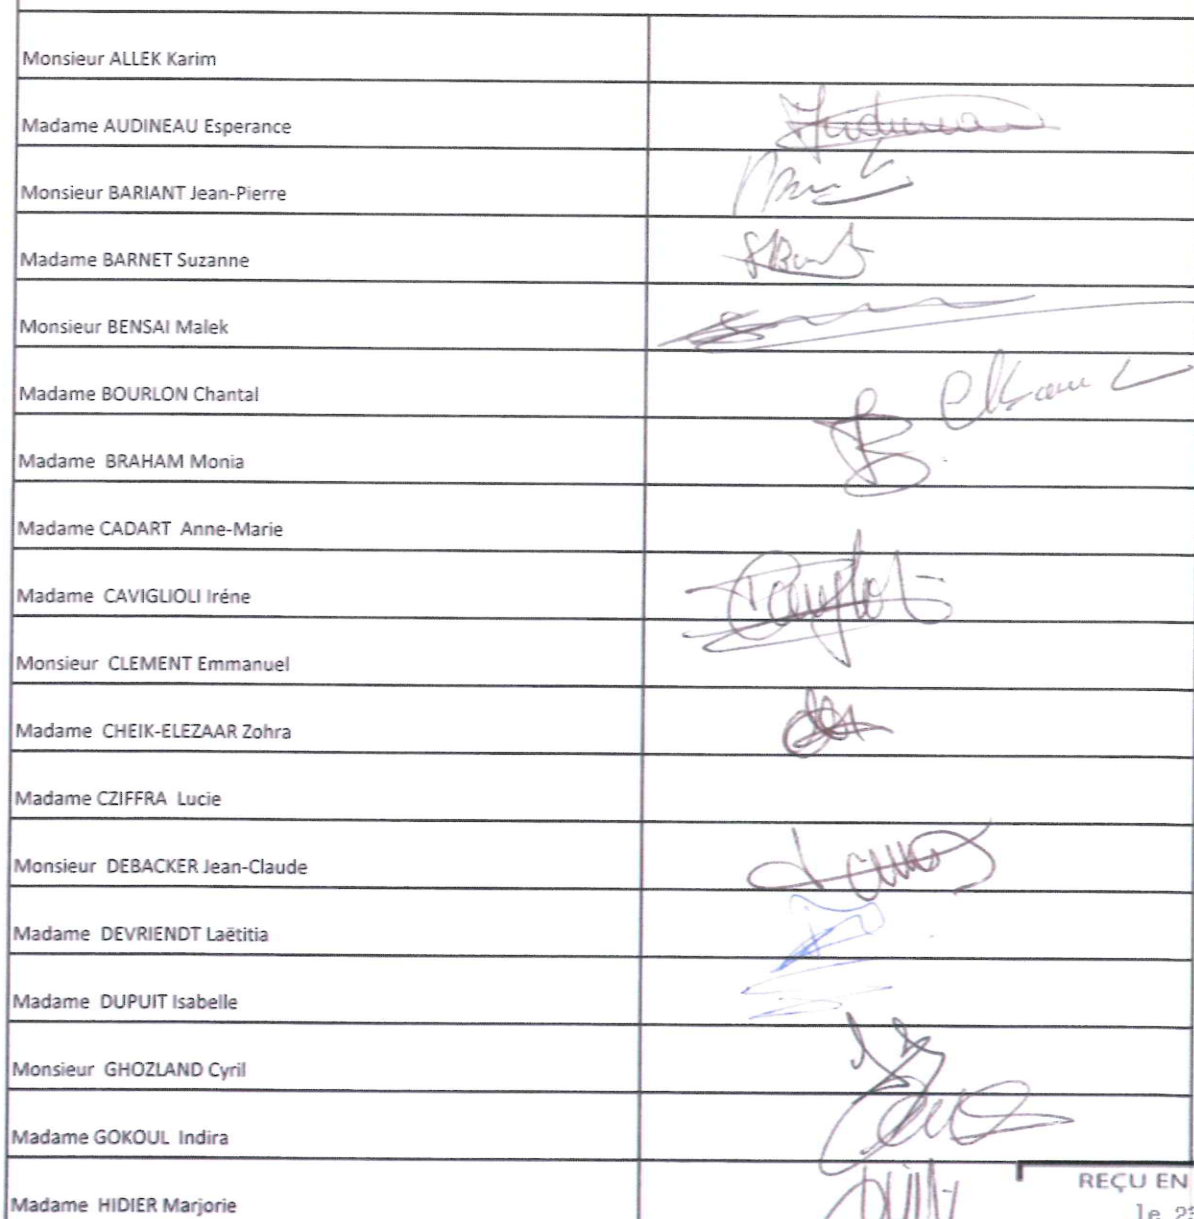 Monsieur ALLEK Karim
Madame AUDINEAU Esperance
Monsieur BARIANT Jean-Pierre
Madame BARNET Suzanne
Monsieur BENSAI Malek
Madame BOURLON Chantal
Madame BRAHAM Monia
Madame CADART Anne-Marie
Madame CAVIGLIOLI Iréne
Monsieur CLEMENT Emmanuel
Madame CHEIK-ELEZAAR Zohra
Madame CZIFFRA Lucie
Monsieur DEBACKER Jean-Claude
Madame DEVRIENDT Laëtitia
Madame DUPUIT Isabelle
Monsieur GHOZLAND Cyril
Madame GOKOUL Indira
REÇU EN
Madame HIDIER Marjorie
le 23